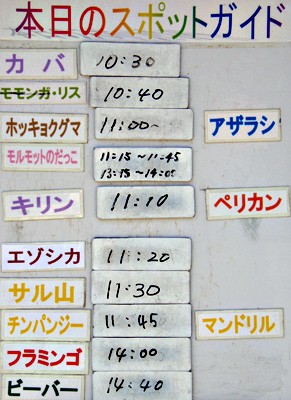 本日のスポットガイド
カバ 10:30
モモンガ・リス 10:40
ホッキョクグマ 11:00~ アザラシ
モルモットのだっこ 11:15~11:45
13:15~14:00
キリン 11:10 ペリカン
エゾシカ 11:20
サル山 11:30
チンパンジー 11:45 マンドリル
フラミンゴ 14:00
ビーバー 14:40